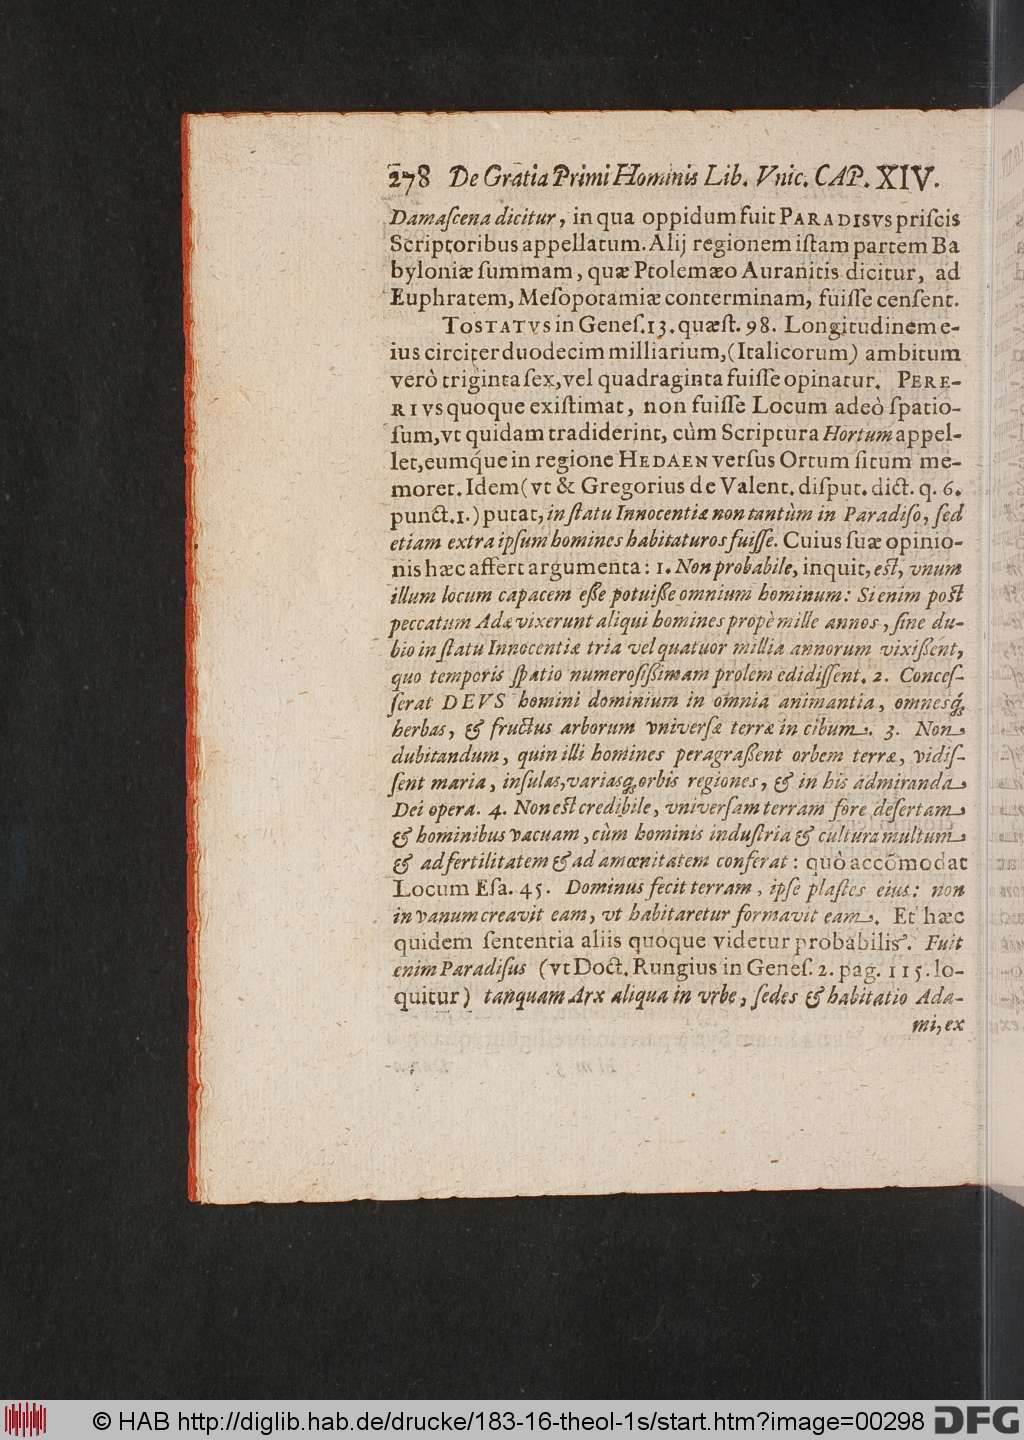 278 De Gratia Primi Hominis Lib. Vnic. CAP. XIV.
Damaſcena dicitur, in qua oppidum fuit PARADISVS priſcis
Scriptoribus appellatum. Alij regionem iſtam partem Ba
byloniæ ſummam, quæ Ptolemæo Auranitis dicitur, ad
Euphratem, Meſopotamiæ conterminam, fuiſſe cenſent.
TOSTATVS in Geneſ. 13. quæſt. 98. Longitudinem e-
ius circiter duodecim milliarium, (Italicorum) ambitum
verò triginta ſex, vel quadraginta fuiſſe opinatur. PERE-
RIVS quoque exiſtimat, non fuiſſe Locum adeò ſpatio-
ſum, vt quidam tradiderint, cùm Scriptura Hortum appel-
let, eumq́ue in regione HEDAEN verſus Ortum ſitum me-
moret. Idem (vt & Gregorius de Valent. diſput. dict. q. 6.
punct. 1.) putat, in ſtatu Innocentiæ non tantùm in Paradiſo, ſed
etiam extra ipſum homines habitaturos fuiſſe. Cuius ſuæ opinio-
nis hæc affert argumenta: 1. Non probabile, inquit, eſt, vnum
illum locum capacem eſſe potuiſſe omnium hominum: Si enim poſt
peccatum Adæ vixerunt aliqui homines propè mille annos, ſine du-
bio in ſtatu Innocentiæ tria vel quatuor millia annorum vixiſſent,
quo temporis ſpatio numeroſiſſimam prolem edidiſſent. 2. Conceſ-
ſerat DEVS homini dominium in omnia animantia, omnesq́;
herbas, & fructus arborum vniverſæ terræ in cibum. 3. Non
dubitandum, quin illi homines peragraſſent orbem terræ, vidiſ-
ſent maria, inſulas, variasq́; orbis regiones, & in his admiranda
Dei opera. 4. Non eſt credibile, vniverſam terram fore deſertam
& hominibus vacuam, cùm hominis induſtria & cultura multum
& ad fertilitatem & ad amœnitatem conferat: quò accōmodat
Locum Eſa. 45. Dominus fecit terram, ipſe plaſtes eius: non
in vanum creavit eam, vt habitaretur formavit eam. Et hæc
quidem ſententia aliis quoque videtur probabilis. Fuit
enim Paradiſus (vt Doct. Rungius in Geneſ. 2. pag. 115. lo-
quitur) tanquam Arx aliqua in vrbe, ſedes & habitatio Ada-
mi, ex
© HAB http://diglib.hab.de/drucke/183-16-theol-1s/start.htm?image=00298
DFG